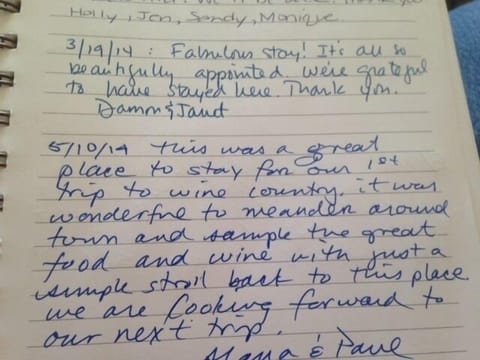 Thank you
Holly, Jon, Sandy, Monique.
3/19/14 : Fabulous stay! It's all so
beautifully appointed. We're grateful
to have stayed here. Thank you.
Damon & Janet
5/10/14 This was a great
place to stay for our 1st
trip to wine country. it was
wonderful to meander around
town and sample the great
food and wine with just a
simple stroll back to this place
we are looking forward to
our next trip.
& Dave